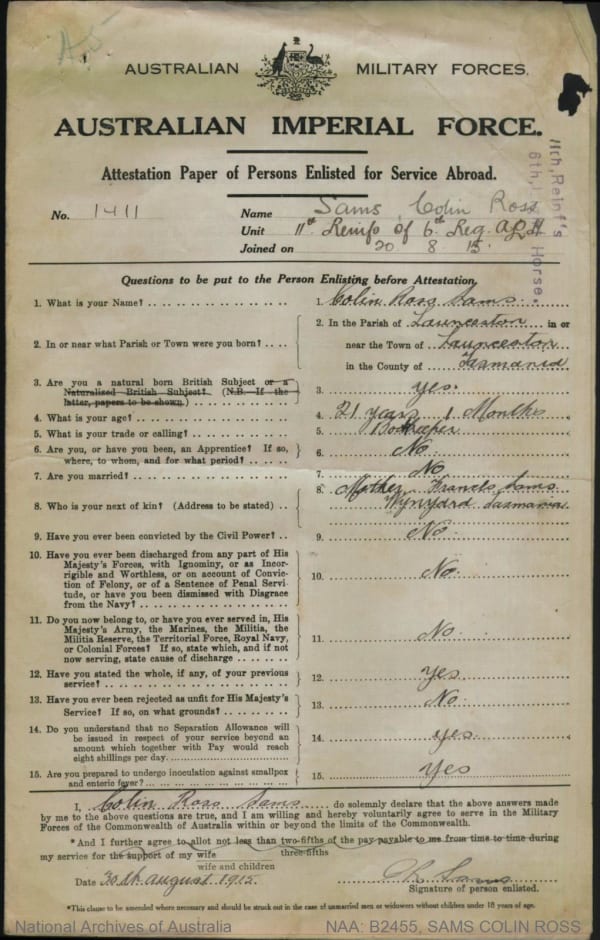 A.5
AUSTRALIAN MILITARY FORCES.
AUSTRALIAN IMPERIAL FORCE.
Attestation Paper of Persons Enlisted for Service Abroad.
11th, Reinf's
6th, Light Horse.
No. 1411 Name Sams Colin Ross
Unit 11th Reinfs of 6th Reg. A.L.H
Joined on 20 8 15.
Questions to be put to the Person Enlisting before Attestation.
1. What is your Name? 1. Colin Ross Sams.
2. In or near what Parish or Town were you born? 2. In the Parish of Launceston in or
near the Town of Launceston
in the County of Tasmania
3. Are you a natural born British Subject or a
Naturalized British Subject? (N.B. If the
latter, papers to be shown.) 3. yes.
4. What is your age? 4. 21 years 1 Months
5. What is your trade or calling? 5. Bookkeeper
6. Are you, or have you been, an Apprentice? If so,
where, to whom, and for what period? 6. No
7. Are you married? 7. No
8. Who is your next of kin? (Address to be stated) 8. Mother Francis Sams
Wynyard Tasmania
9. Have you ever been convicted by the Civil Power? 9. No.
10. Have you ever been discharged from any part of His
Majesty's Forces, with Ignominy, or as Incor-
rigible and Worthless, or on account of Convic-
tion of Felony, or of a Sentence of Penal Servi-
tude, or have you been dismissed with Disgrace
from the Navy? 10. No.
11. Do you now belong to, or have you ever served in, His
Majesty's Army, the Marines, the Militia, the
Militia Reserve, the Territorial Force, Royal Navy,
or Colonial Forces? If so, state which, and if not
now serving, state cause of discharge 11. No.
12. Have you stated the whole, if any, of your previous
service? 12. yes.
13. Have you ever been rejected as unfit for His Majesty's
Service? If so, on what grounds? 13. No.
14. Do you understand that no Separation Allowance will
be issued in respect of your service beyond an
amount which together with Pay would reach
eight shillings per day. 14. yes.
15. Are you prepared to undergo inoculation against smallpox
and enteric fever? 15. yes
I, Colin Ross Sams do solemnly declare that the above answers made
by me to the above questions are true, and I am willing and hereby voluntarily agree to serve in the Military
Forces of the Commonwealth of Australia within or beyond the limits of the Commonwealth.
*And I further agree to allot not less than two-fifths of the pay payable to me from time to time during
three-fifths
my service for the support of my wife
wife and children
Date 30th august 1915. Sams
Signature of person enlisted.
*This clause to be amended where necessary and should be struck out in the case of unmarried men or widowers without children under 18 years of age.
National Archives of Australia NAA: B2455, SAMS COLIN ROSS